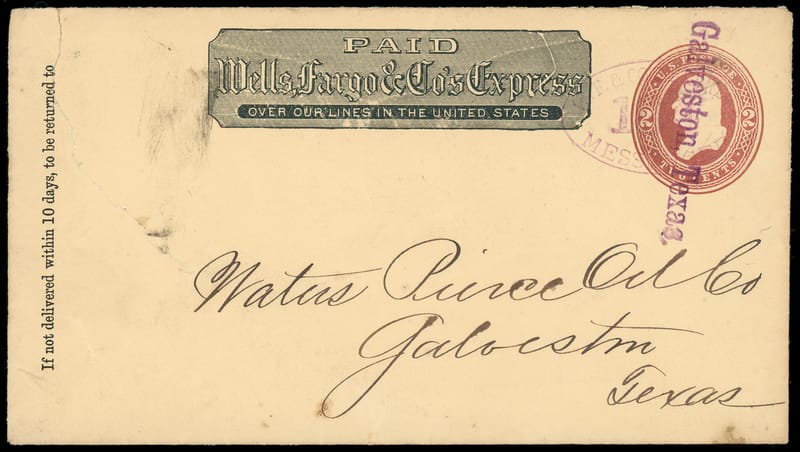 If not delivered within 10 days, to be returned to
PAID
Wells, Fargo & Co's Express
OVER OUR LINES IN THE UNITED STATES
E. & CO
MESS
U.S. POSTAGE
2 2
TWO CENTS
Galveston, Texas.
Waters Pierce Oil Co
Galveston
Texas